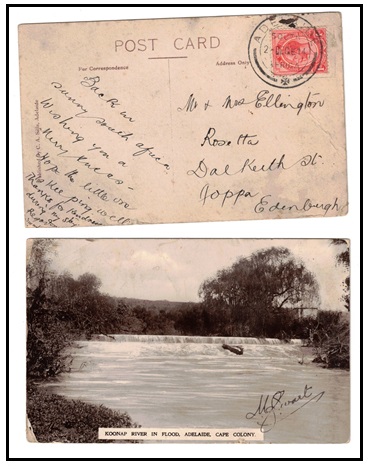 POST CARD
For Correspondence
Address Only
Back in
sunny South Africa
Wishing you a
Merry Xmas
Hope the little one
is keeping well
Mr & Mrs Ellington
Rosetta
Dalkeith St.
Joppa
Edenburgh
KOONAP RIVER IN FLOOD, ADELAIDE, CAPE COLONY.